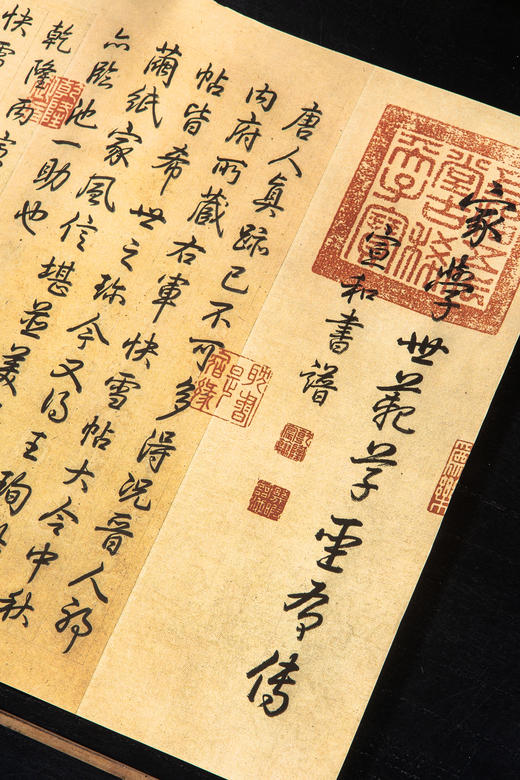 家學世範草聖有傳
宣和書譜
堂古稀
天子寶
唐人真跡已不可多得況晉人耶
內府所藏右軍快雪帖大令中秋
帖皆希世之珍今又得王珣
繭紙家風信堪並美
亦臨池一助也
乾隆丙寅
快雪